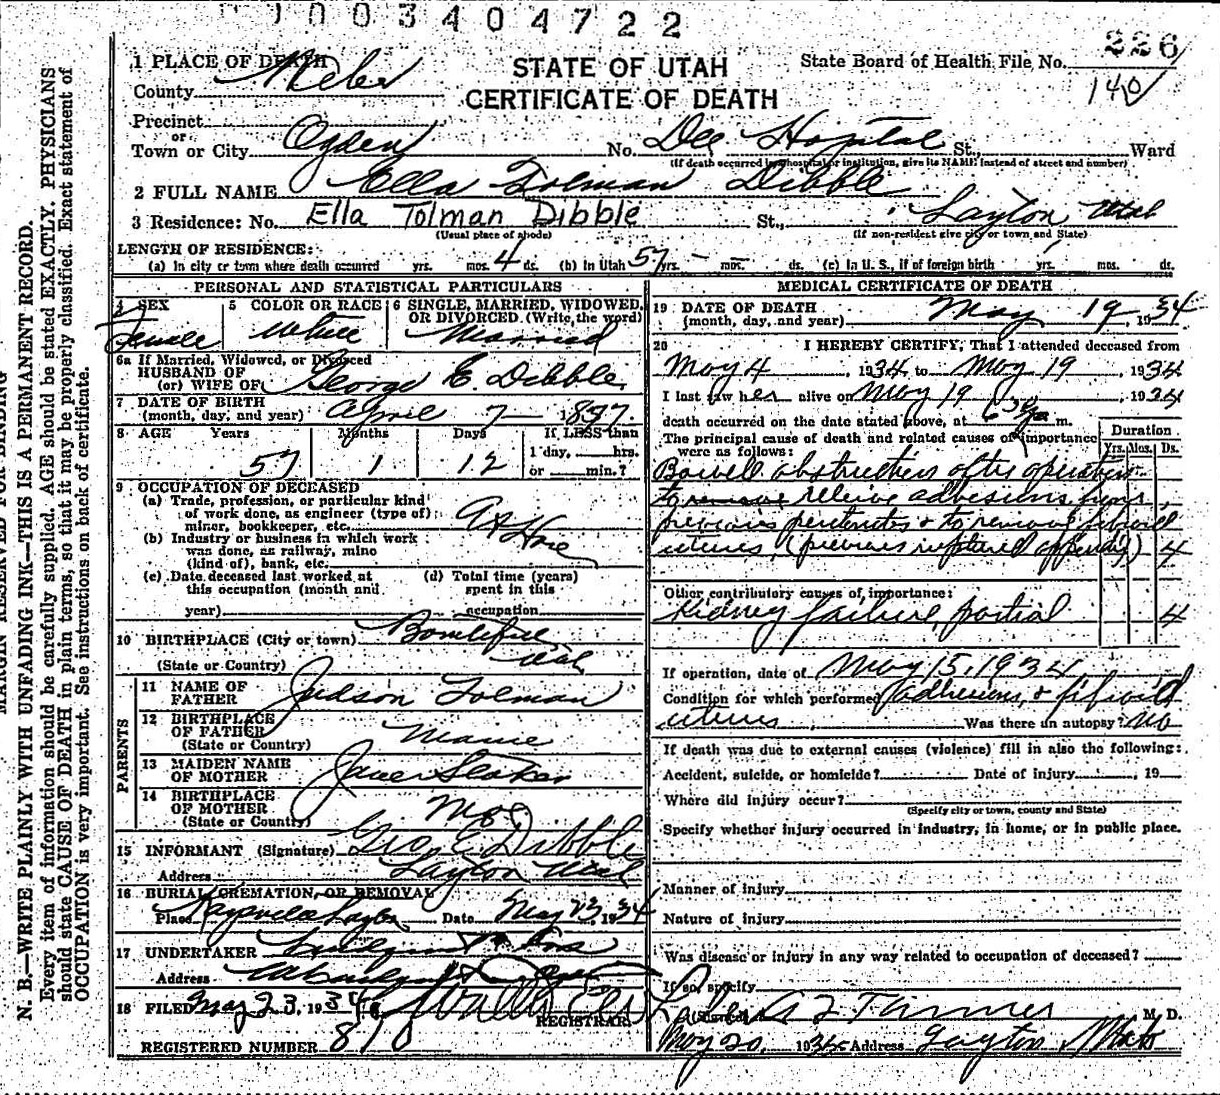 1003404722
226
140
1 PLACE OF DEATH
STATE OF UTAH
CERTIFICATE OF DEATH
State Board of Health File No.
County Weber
Precinct
or
Town or City Ogden No. Dee Hospital St., Ward
(If death occurred in a hospital or institution, give its NAME instead of street and number)
2 FULL NAME Ella Tolman Dibble
3 Residence: No. Ella Tolman Dibble St., Layton Utah
(Usual place of abode) (If non-resident give city or town and State)
LENGTH OF RESIDENCE:
(a) In city or town where death occurred yrs. mos. 4 ds. (b) In Utah 57 yrs. - mos. ds. (c) In U. S., if of foreign birth yrs. mos. ds.
PERSONAL AND STATISTICAL PARTICULARS
4 SEX Female
5 COLOR OR RACE white
6 SINGLE, MARRIED, WIDOWED, OR DIVORCED (Write the word) Married
6a If Married, Widowed, or Divorced
HUSBAND OF
(or) WIFE OF George E. Dibble
7 DATE OF BIRTH
(month, day, and year) April 7 1837
8 AGE Years Months Days If LESS than
57 1 12 1 day, hrs.
or min.?
9 OCCUPATION OF DECEASED
(a) Trade, profession, or particular kind
of work done, as engineer (type of)
miner, bookkeeper, etc. At Home
(b) Industry or business in which work
was done, as railway, mine
(kind of), bank, etc.
(c) Date deceased last worked at
this occupation (month and
year)
(d) Total time (years)
spent in this
occupation
10 BIRTHPLACE (City or town) Bountiful
(State or Country) Utah
PARENTS
11 NAME OF
FATHER Judson Tolman
12 BIRTHPLACE
OF FATHER Maine
(State or Country)
13 MAIDEN NAME
OF MOTHER Jane Stoker
14 BIRTHPLACE
OF MOTHER Mo.
(State or Country)
15 INFORMANT (Signature) Geo E. Dibble
Address Layton Utah
16 BURIAL, CREMATION, OR REMOVAL
Place Date May 23, 1934
17 UNDERTAKER
Address
18 FILED May 23, 1934
REGISTRAR
REGISTERED NUMBER 810
MEDICAL CERTIFICATE OF DEATH
19 DATE OF DEATH
(month, day, and year) May 19, 1934
20 I HEREBY CERTIFY, That I attended deceased from
May 4, 1934 to May 19, 1934
I last saw her alive on May 19, 1934
death occurred on the date stated above, at m.
The principal cause of death and related causes of importance
were as follows:
Duration
Yrs. Mos. Ds.
Bowell obstruction after operation
to remove releive adhesions from
previous peritonites & to remove fibroid
uterus, (previous ruptured appendix) 4
Other contributory causes of importance:
Kidney failure, partial 4
If operation, date of May 15, 1934
Condition for which performed Adhesions, & fibroid
uterus Was there an autopsy? no
If death was due to external causes (violence) fill in also the following:
Accident, suicide, or homicide? Date of injury , 19
Where did injury occur?
(Specify city or town, county and State)
Specify whether injury occurred in industry, in home, or in public place.
Manner of injury
Nature of injury
Was disease or injury in any way related to occupation of deceased?
If so, specify
(Signed) M. D.
May 20, 1934 Address Layton, Utah
MARGIN RESERVED FOR BINDING
N. B.—WRITE PLAINLY WITH UNFADING INK—THIS IS A PERMANENT RECORD.
Every item of information should be carefully supplied. AGE should be stated EXACTLY. PHYSICIANS
should state CAUSE OF DEATH in plain terms, so that it may be properly classified. Exact statement of
OCCUPATION is very important. See instructions on back of certificate.